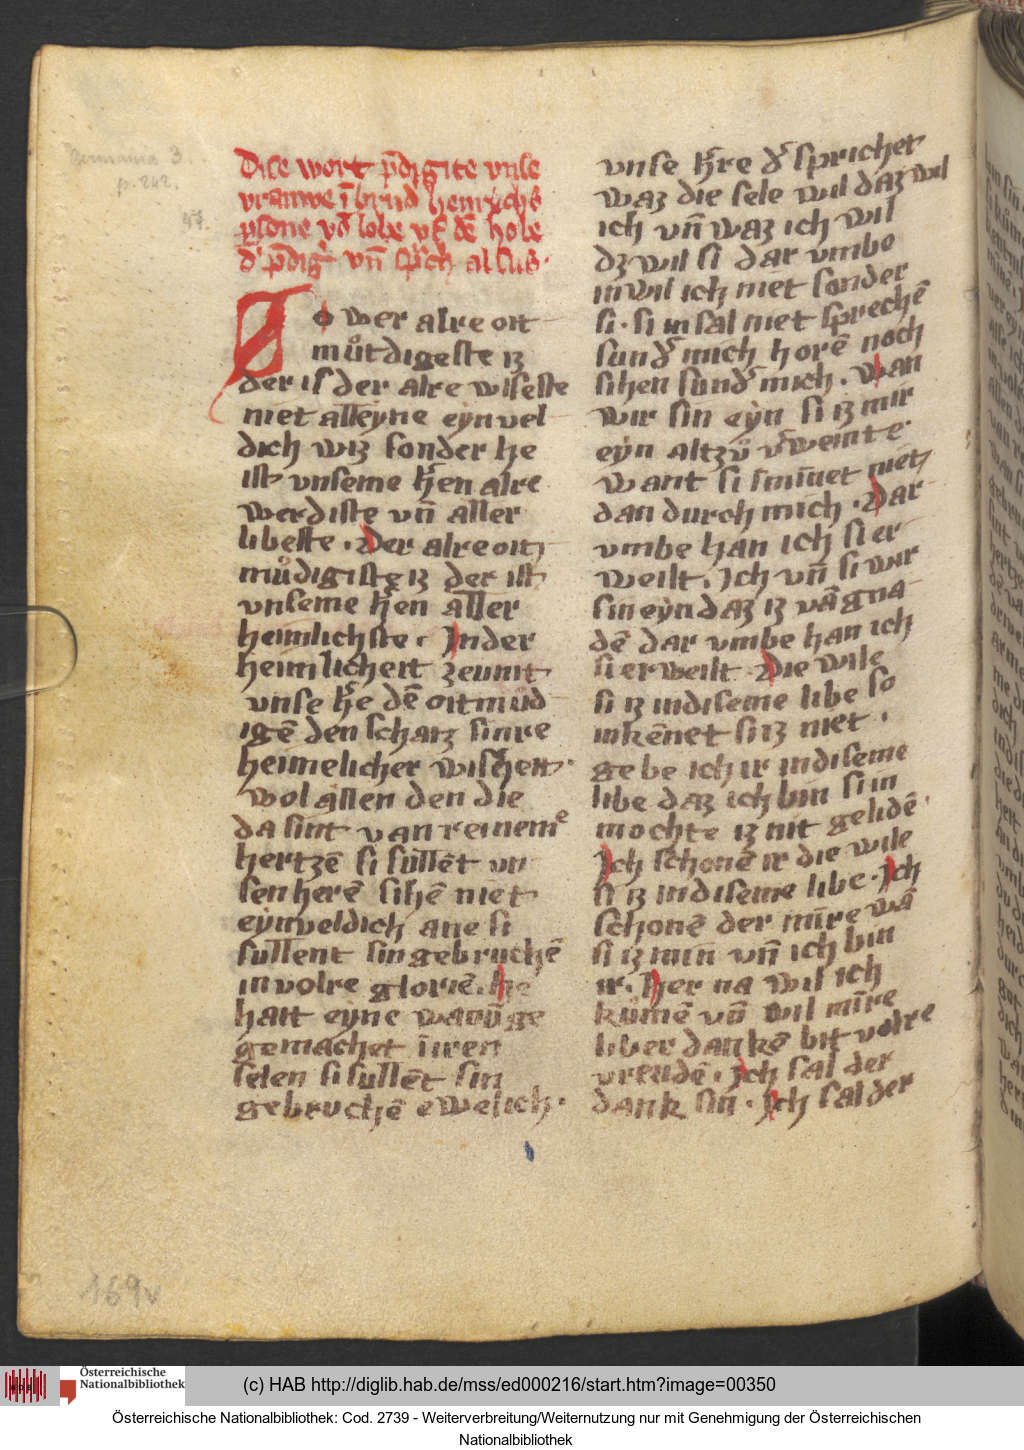 Germania 3.
p. 242.
47.
Dise wort p̄digite vnse
vrauwe ī brud̓ heinrichs
p̱sone vō lobe vf dē hole
d̓ p̄dig̓ vn̄ sp̓ch alsus.
So wer alre oit
muͦtdigeste iz
der is der alre wiseste
niet alleyne eynvel
dich wiz sonder he
ist vnseme h̓ren alre
werdiste vn̄ aller
libeste . Der alre oit
muͦdigiste iz der ist
vnseme h̓ren aller
heimlichste . Jnder
heimlicheit zeunit
vnse h̓re dē oitmuͦd
igē den schatz sinre
heimelicher wisheit .
wol allen den die
da sint van reineme
hertzē si sullēt vn
sen herē sihē niet
eynveldich ane si
sullent singebruchē
in volre glorie . he
hait eyne
gemachet in iren
selen si sullēt sin
gebruchē ewelich .
vnse h̓re d̓ sprichet
waz die sele wil daz wil
ich vn̄ waz ich wil
dz wil si dar vmbe
inwil ich niet sonder
si . si insal niet sprechē
sund̓ mich horē noch
sihen sund̓ mich . Wan
wir sin eyn si iz mir
eyn altzuͦ v̓weinte .
want si inminnet niet
dan durch mich . Dar
vmbe han ich si er
weilt . Jch vn̄ si wir
sin eyn daz iz vā gna
dē dar vmbe han ich
si erweilt . Die wile
si iz indiseme libe so
inkēnet si iz niet .
gebe ich ir indiseme
libe daz ich bin si in
mochte iz nit gelidē .
Jch schonē ir die wile
si iz indiseme libe . Jch
schonē der mīre wā
si iz min vn̄ ich bin
ir . Her na wil ich
kumē vn̄ wil mīre
liber dankē bit volre
vreudē . Jch sal der
dank sin . Jch sal der
169v
HAB
Österreichische
Nationalbibliothek
(c) HAB http://diglib.hab.de/mss/ed000216/start.htm?image=00350
Österreichische Nationalbibliothek: Cod. 2739 - Weiterverbreitung/Weiternutzung nur mit Genehmigung der Österreichischen
Nationalbibliothek